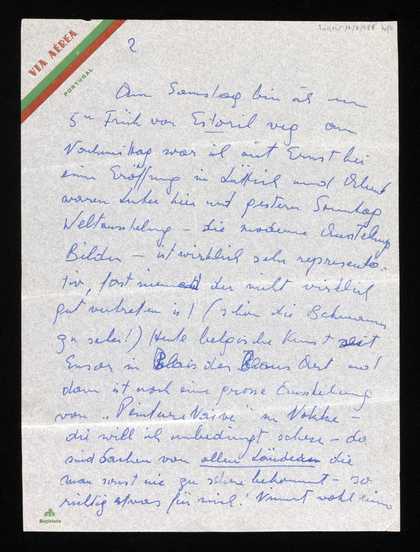 VIA AÉREA
PORTUGAL
2
Am Samstag bin ich um
5h Früh von Estoril weg am
Nachmittag war ich mit Ernst bei
einer Eröffnung in Lüttich und Abend
waren hier und gestern Sonntag
Weltausstellung – die moderne Ausstellung
Bilder – ist wirklich sehr representa-
tiv, fast niemand der nicht wirklich
gut vertreten ist (schön die
zu sehen!) Heute belgische Kunst seit
Ensor in Palais des Beaux Art und
dann ist noch eine grosse Ausstellung
von „Peinture Naive" in Nokke –
die will ich unbedingt sehen – da
sind Sachen von allen Ländern die
man sonst nie zu sehen bekommt – so
richtig etwas für mich! Nimmt wohl einen